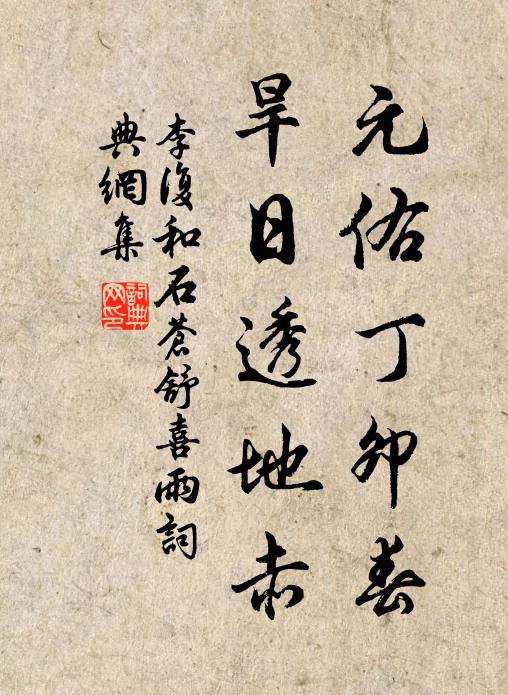 元佑丁卯春
旱日透地赤
李復和石蒼舒喜雨詞
典網集
詞典网印